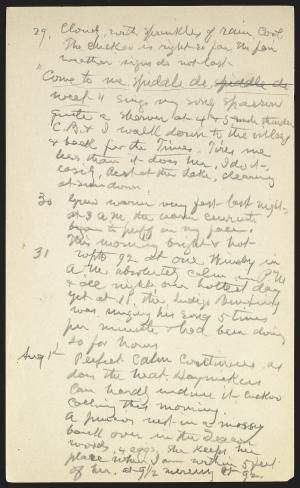 29. Cloudy with sprinkles of rain Cool.
The cuckoo is right so far the fair
weather signs do not last.
"Come to me fiddle de, fiddle de
weet" sings my song sparrow
quite a shower at 4 & 5 much thunder
C.B. & I walk down to the village
& back for the Times. Tires me
less than it does her, I do it
easily, Rest at the Lake, clearing
at sundown.
30 Grew warm very fast last night-
at 3 A.M. the warm currents
began to puff on my face.
This morning bright & hot
31 up to 92 at one Windy in P.M.
A.M. absolutely calm in
& all night our hottest day
yet at 1 P.M. the Indigo Bunting
was singing his song 5 times
per minute & had been doing
so for hours
Aug 1st Perfect calm continues as
does the heat. Haymakers
can hardly endure it. Cuckoo
calling this morning.
A junco nest in a mossy
bank over in the Deacon
woods, 4 eggs, she keeps her
place when I am within 5 feet
of her. at 9 1/2 mercury at 92